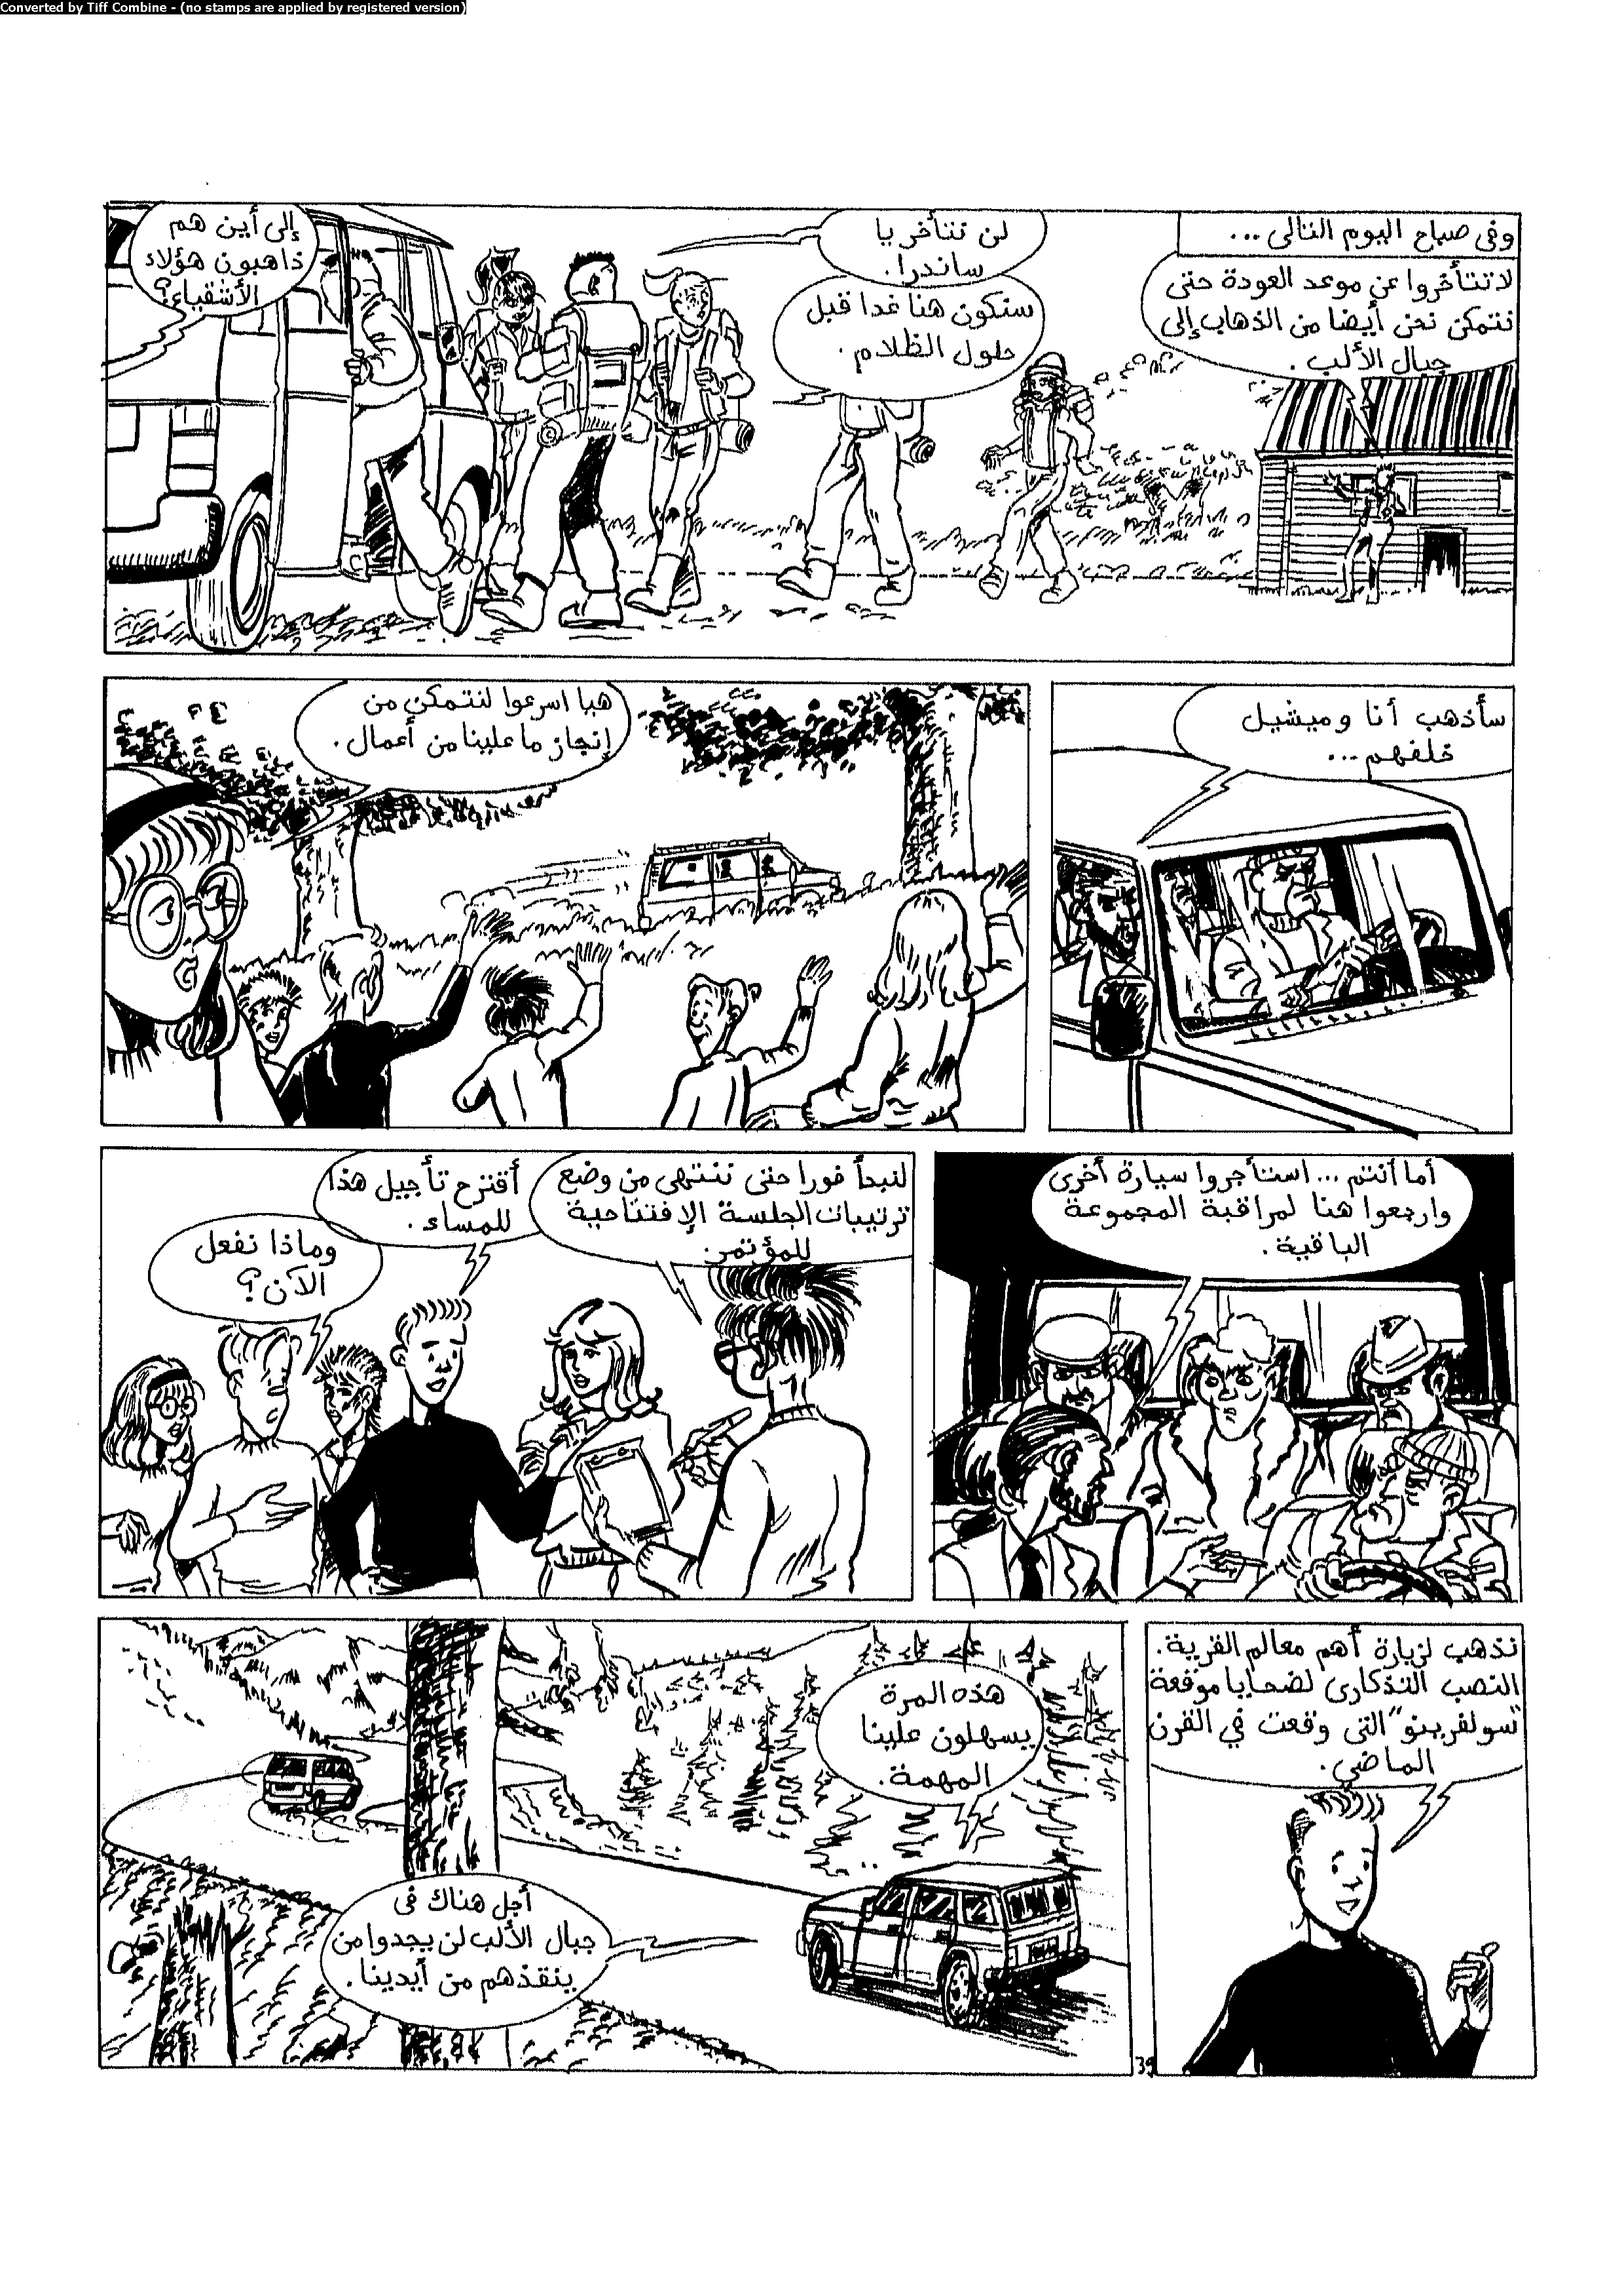 Converted by Tiff Combine - (no stamps are applied by registered version)
وفى صباح اليوم التالى ...
لا تتأخروا عن موعد العودة حتى
نتمكن نحن أيضا من الذهاب إلى
جبال الألب .
لن نتأخر يا
ساندرا.
سنكون هنا غدا قبل
حلول الظلام .
إلى أين هم
ذاهبون هؤلاء
الأشقياء؟
سأذهب أنا وميشيل
خلفهم ...
هيا اسرعوا لنتمكن من
إنجاز ما علينا من أعمال .
أما أنتم ... استأجروا سيارة أخرى
وارجعوا هنا لمراقبة المجموعة
الباقية .
لنبدأ فورا حتى ننتهى من وضع
ترتيبات الجلسة الإفتتاحية
للمؤتمر.
أقترح تأجيل هذا
للمساء .
وماذا نفعل
الآن؟
نذهب لزيارة أهم معالم القرية.
النصب التذكارى لضحايا موقعة
"سولفرينو" التى وقعت في القرن
الماضي .
هذه المرة
يسهلون علينا
المهمة .
أجل هناك فى
جبال الألب لن يجدوا من
ينقذهم من أيدينا .
39